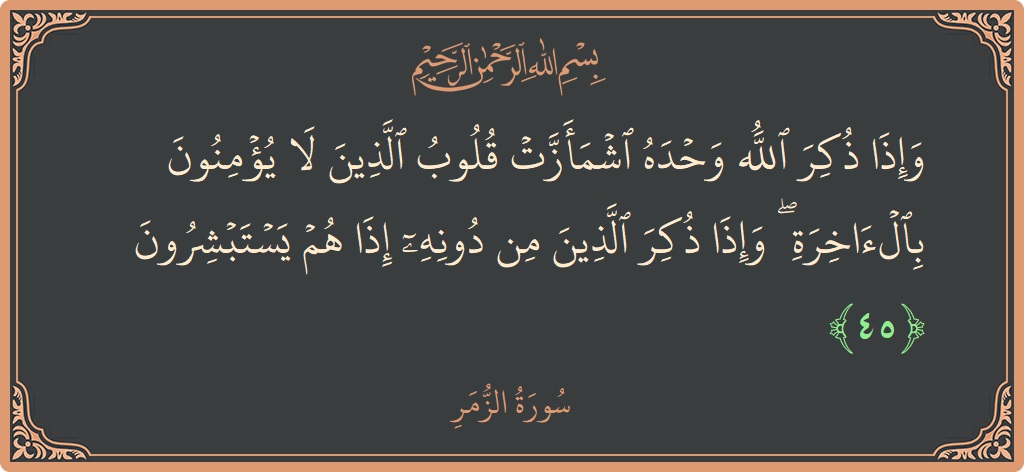 بِسْمِ اللَّهِ الرَّحْمَٰنِ الرَّحِيمِ
وَإِذَا ذُكِرَ ٱللَّهُ وَحْدَهُ ٱشْمَأَزَّتْ قُلُوبُ ٱلَّذِينَ لَا يُؤْمِنُونَ
بِٱلْءَاخِرَةِ ۖ وَإِذَا ذُكِرَ ٱلَّذِينَ مِن دُونِهِۦٓ إِذَا هُمْ يَسْتَبْشِرُونَ
﴿٤٥﴾
سُورَةُ الزُّمَرِ